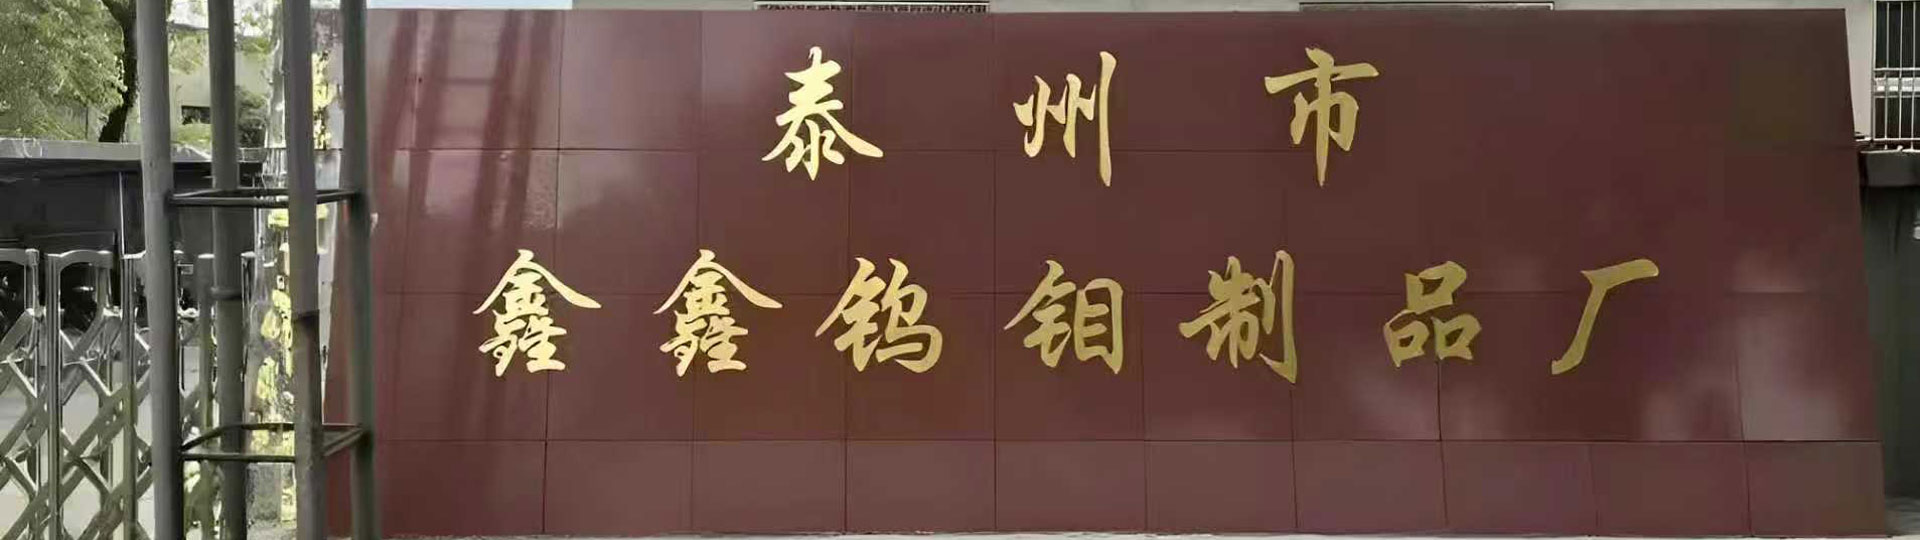 泰州市
鑫鑫钨钼制品厂